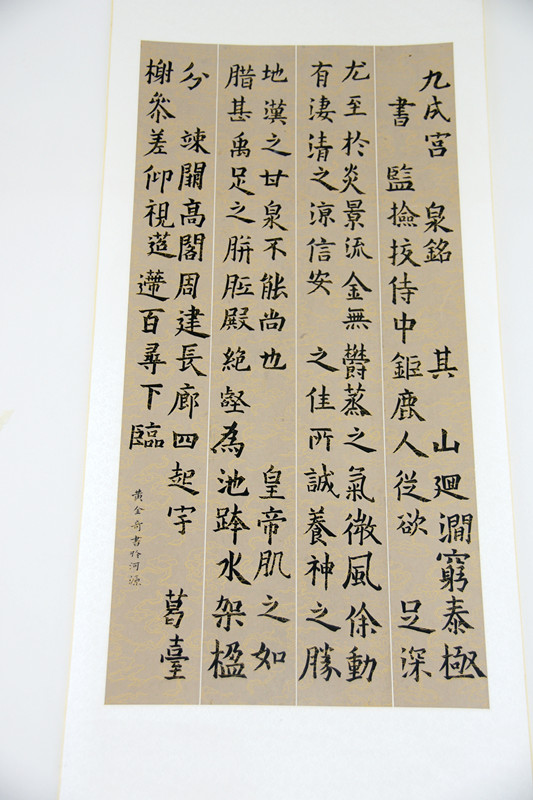 九成宮 泉銘 其 山迴澗窮泰極
書 監撿挍侍中鉅鹿人從欲 足深
尤至於炎景流金無欝蒸之氣微風徐動
有淒清之涼信安 之佳所誠養神之勝
地漢之甘泉不能尚也 皇帝肌之如
腊甚禹足之胼胝殿絶壑為池跨水架楹
分 竦闕高閣周建長廊四起宇 葛臺
榭叅差仰視迢遰百尋下臨
黄金奇書於河源